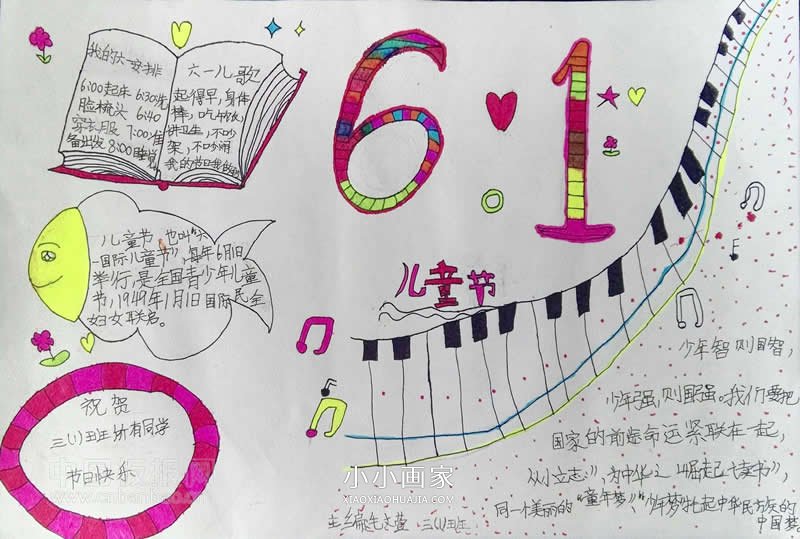 我的六一安排
6:00起床 6:30洗
脸梳头 6:40
穿衣服 7:00准
备出发 8:00睡觉
六一儿歌
起得早,身体
棒,吃午饭,
讲卫生,不吵
架,不吵闹
我的节日我做
6·1
儿童节
儿童节,也叫"六
一国际儿童节",每年6月1日
举行,是全国青少年儿童
节,1949年1月1日国际民全
妇女联启。
祝贺
三(1)班所有同学
节日快乐
少年智则国智,
少年强,则国强。我们要把
国家的前途命运紧联在一起,
从小立志,为中华之崛起读书,
同一个美丽的"童年梦",少年梦扎起中华民族的
中国梦
主编 三(1)班
小小画家
XIAOXIAOHUAJIA.COM